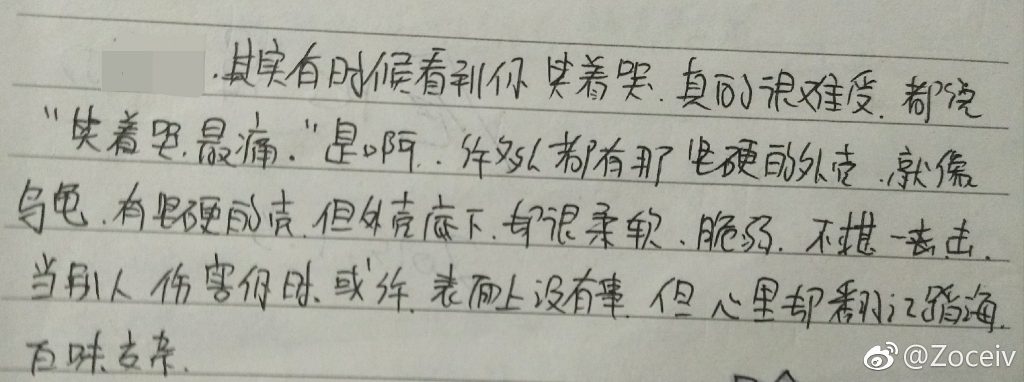 .其实有时候看到你 笑着哭.真的很难受.都说
“笑着哭.最痛.”是啊..许多人都有那坚硬的外壳.就像
乌龟.有坚硬的壳.但外壳底下.却很柔软.脆弱.不堪一击.
当别人伤害你时.或许.表面上没有事.但心里却翻江蹈海.
百味杂.
@Zoceiv